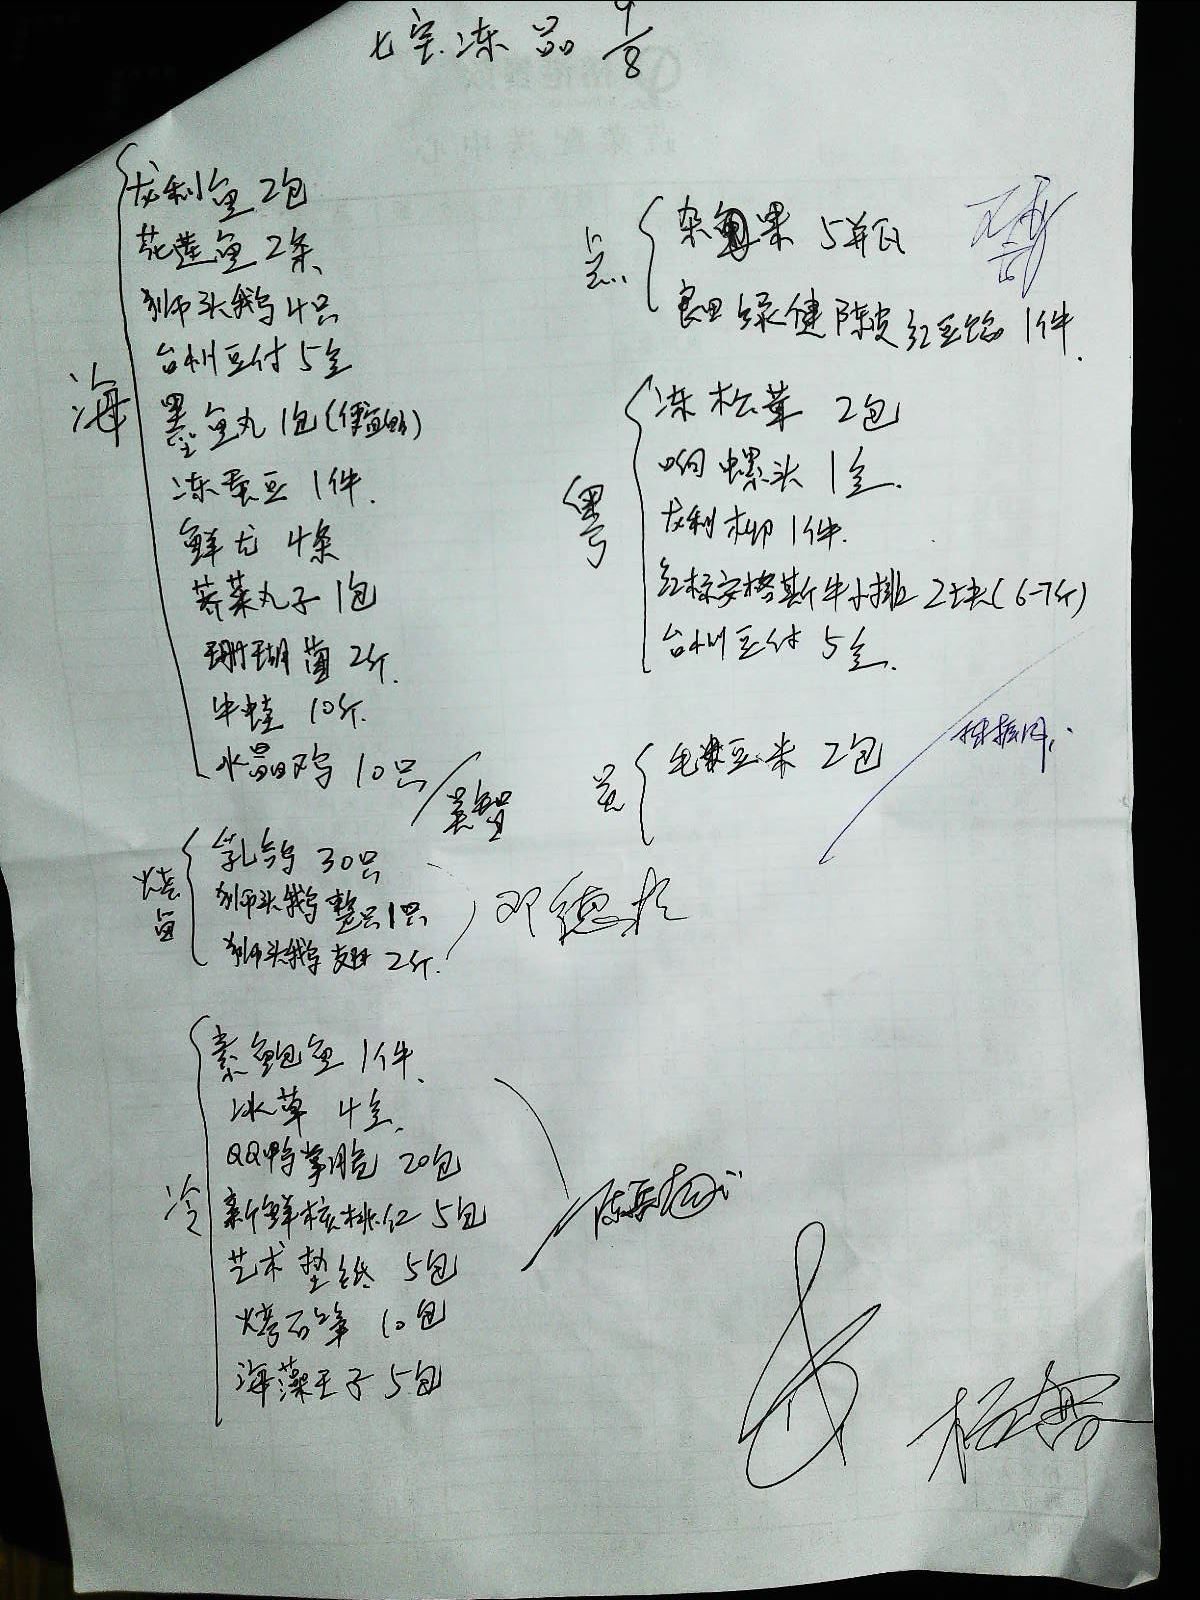 七宝冻品 9/8
海
龙利鱼 2包
花莲鱼 2条
狮头鹅 4只
台州豆付 5盒
墨鱼丸 1包
冻蚕豆 1件.
鲜尤 4条
荠菜丸子 1包
珊瑚 2斤.
牛蛙 10斤.
水晶鸡 10只
烧卤
乳鸽 30只
狮头鹅整只 1只
狮头鹅翅 2斤.
邓德
冷
素鲍鱼 1件.
冰草 4盒.
QQ鸭掌 20包
新鲜核桃仁 5包
艺术垫纸 5包
10包
海藻王子 5包
点
杂果 5
良田绿健陈皮红豆馅 1件.
粤
冻松茸 2包
响螺头 1盒.
龙利柳 1件.
红标安格斯牛小排 2块(6-7斤)
台州豆付 5盒.
毛豆米 2包